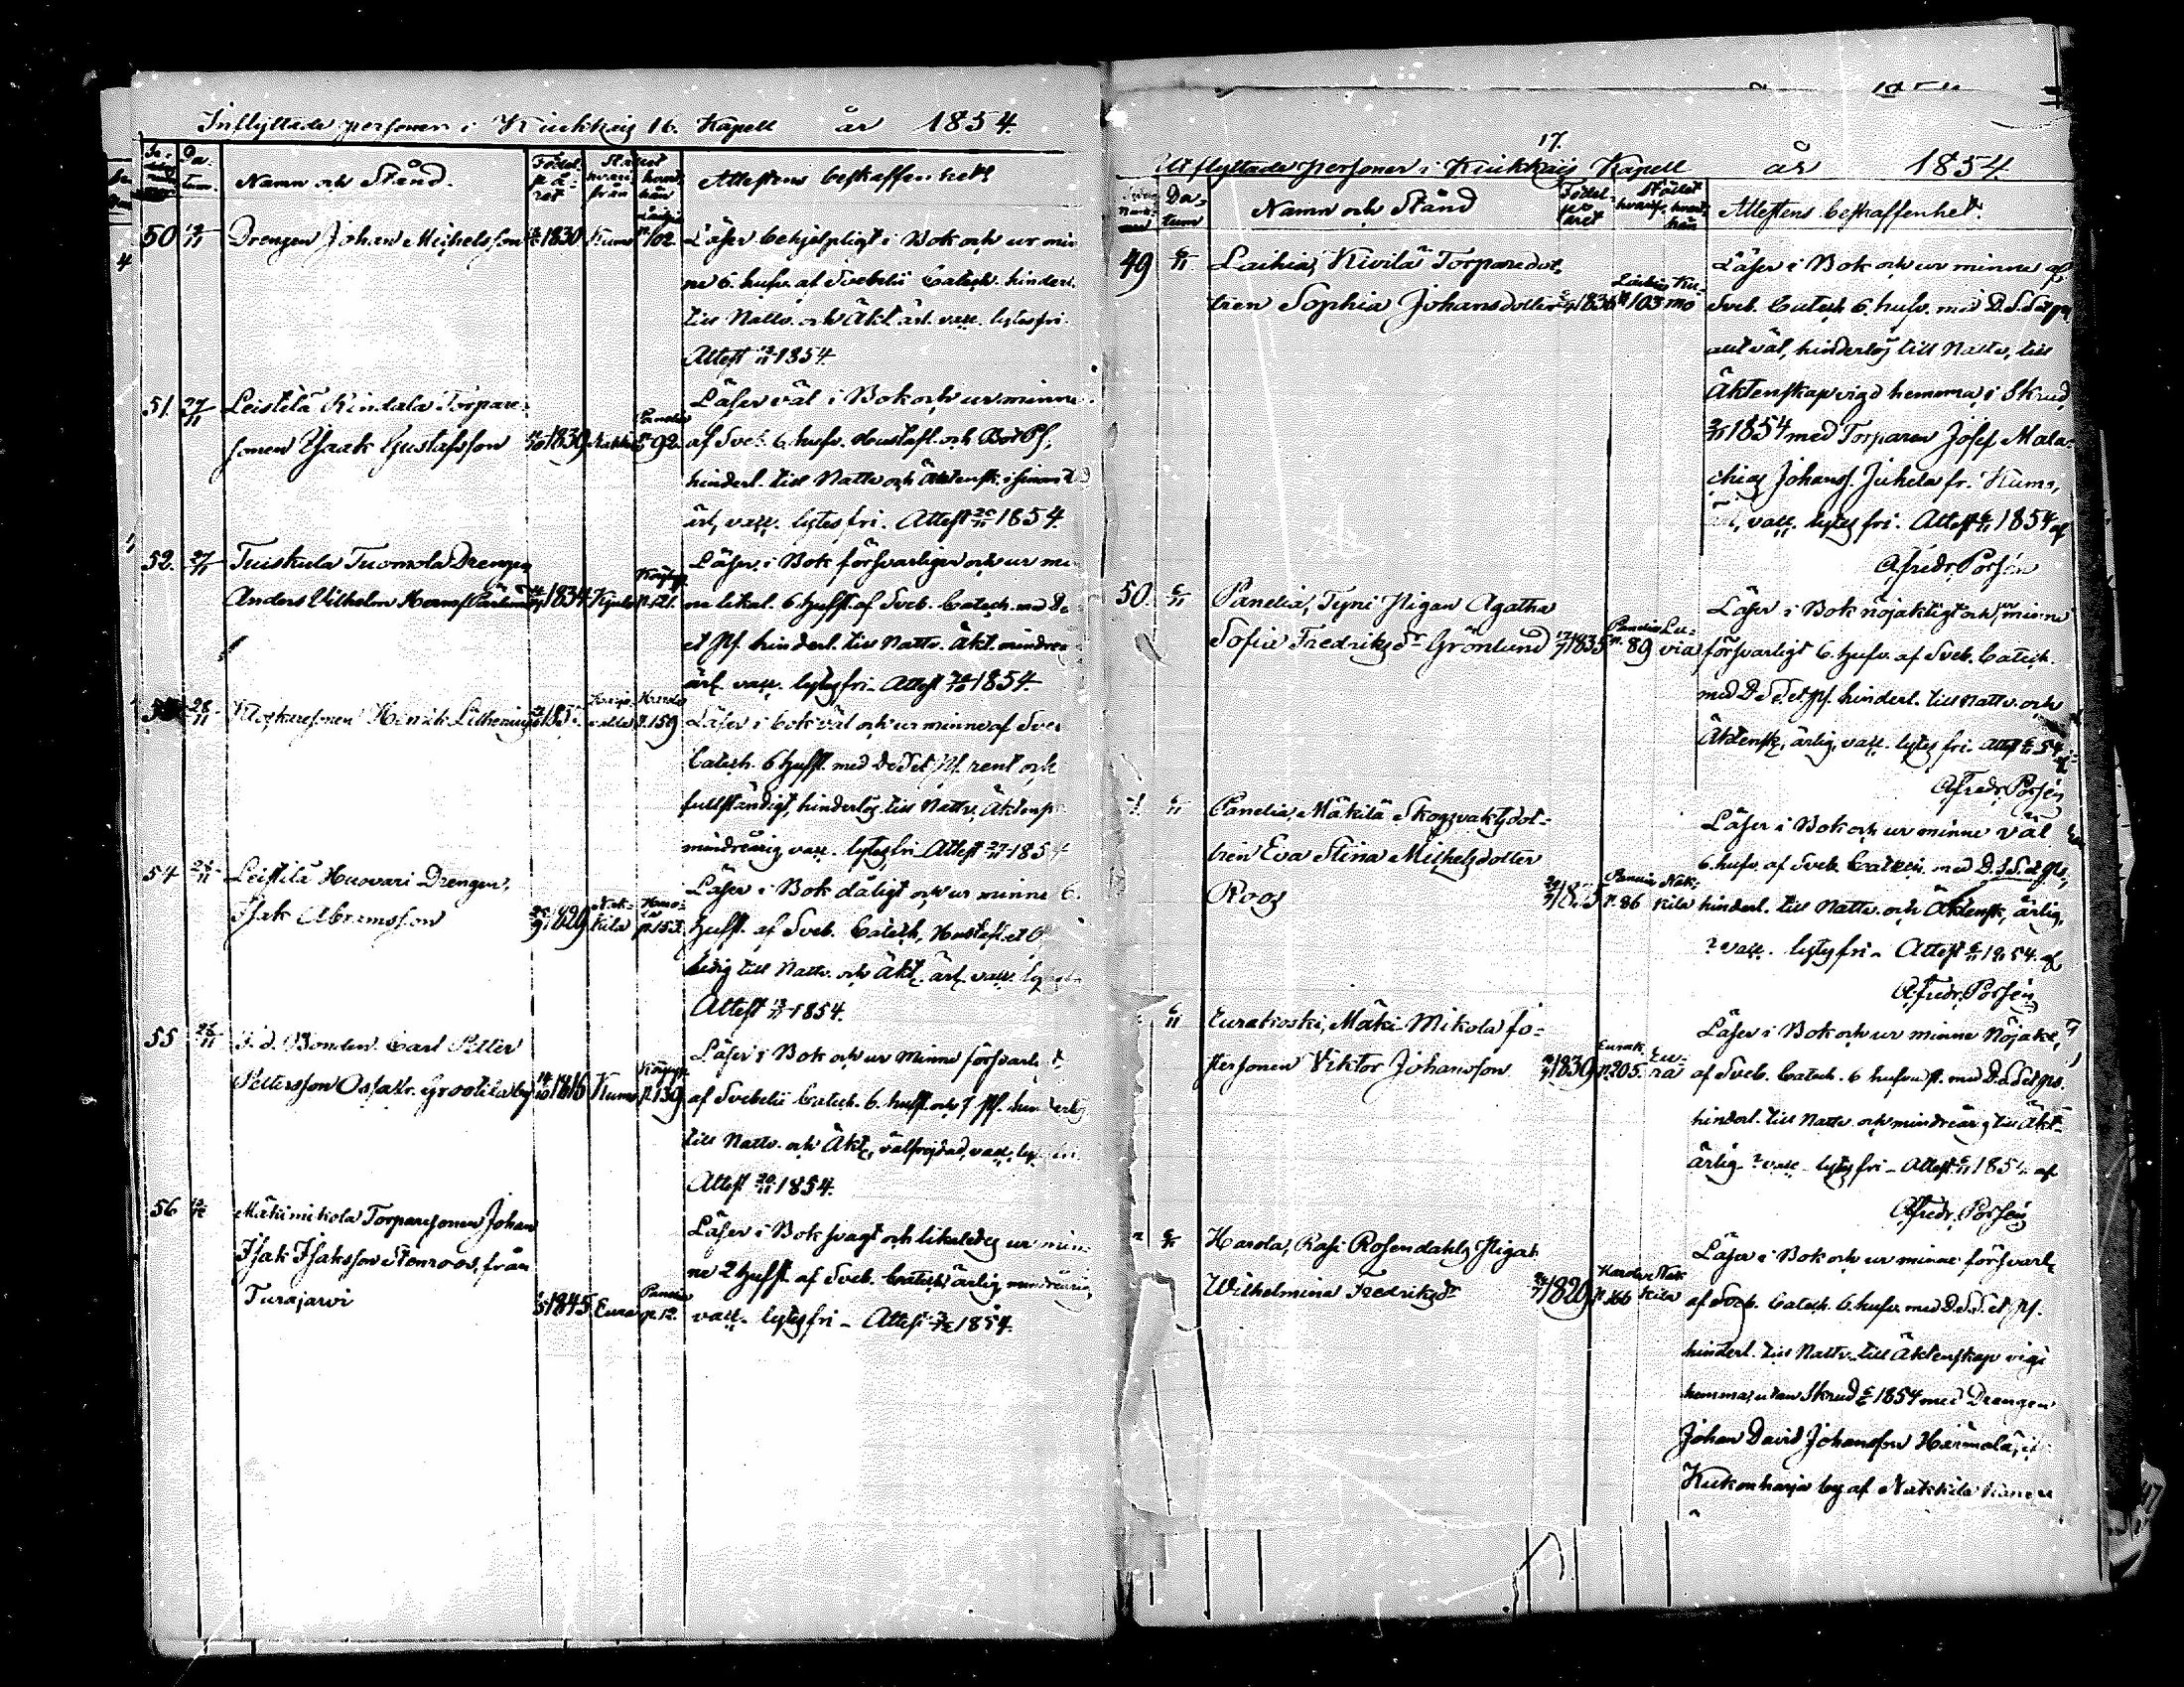 Inflyttade personer i Kiukkais 16. Kapell år 1854.
Namn och Stånd.
Attestens beskaffenhet
50 Drengen Johan Michelsson 1830 Kumo 102 Läser behjelpligt i Bok och ur min
ne 6. hufv. af Svebelii Catech. hinderl.
till Nattv. och Äkt. ärl. vacc. lytesfri.
Attest 1854.
51. 27/11 Leistilä Rindala Torpare-
sonen Isaak Gustafsson 1839 92
Läser väl i Bok och ur minne
af Sveb. 6 hufv. Hustafl. och Bot Ps.
hinderl. till Nattv och Äktensk.
ärl, vacc. lytes fri. Attest 1854.
52. 27/11 Tuiskula Tuomola Drengen
Anders Vilhelm 1834 p. 121.
Läser i Bok försvarligen och ur min
ne likal. 6 hufst. af Sveb. Catech. med
et Ps. hinderl. till Nattv. Äkt. mindreå
ärl. vacc. lytes fri. Attest 1854.
28/11 Klockaresonen Henrik Lilhenius p. 159
Läser i bok väl och ur minne af Sveb
Catech. 6 hufst. med D. S. et Ps. rent och
fullständigt, hinderlös till Nattv. Äktensk
mindreårig, vacc. lytes fri Attest 27/11 1854
54 Leistilä Huovari Drengen,
Isak Abramsson 1829 Nak-
kila
Läser i Bok dåligt och ur minne 6.
hufst. af Sveb. Catech, Hustafl. et
ledig till Nattv. och Äkt. ärl. vacc.
Attest 1854.
55 F. d. Bonden Carl Petter
Pettersson 1816 Kumo p. 139
Läser i Bok och ur Minne försvarl
af Svebelii Catech. 6. hufst. och 7 Ps. hinderlös
till Nattv. och Äkt, välfrejdad, vacc,
Attest 1854.
56 Mäkimikola Torparesonen Johan
Isak Isaksson Stenroos, från
Turajärvi 1845 Eura p. 12.
Läser i Bok svagt och likaledes ur min-
ne 2 hufst. af Sveb. Catech, ärlig, mindreårig
vacc. lytes fri - Attest 1854.
17.
Utflyttade personer i Kiukkais Kapell år 1854
Namn och Stånd
Attestens beskaffenhet.
49 6/11 Laihia, Kivilä Torparedot-
tren Sophia Johansdotter 1836 103 Ku-
mo
Läser i Bok och ur minne af
Sveb. Catech 6. hufv. med D. S. S. et ps
allt väl, hinderlös till Nattv, till
Äktenskap vigd hemma i Skrud
1854 med Torparen Josef Mala-
chias Johanss. Juhela fr. Kumo,
ärl, vacc. lytes fri. Attest 6/11 1854 af
A. Fredr. Porsén
50. 6/11 Panelia, Tyni Pigan Agatha
Sofia Fredriksdr Grönlund 1835 Panelia p. 89 Lu-
via
Läser i Bok nöjaktigt och ur minne
försvarligt 6. hufv. af Sveb. Catech.
med D. S. S. et ps. hinderl. till Nattv. och
Äktensk, ärlig, vacc. lytes fri. Attest 6/11 54
A. Fredr. Porsén
Panelia, Mäkilä Skogsvaktsdot-
tren Eva Stina Michelsdotter
Roos Panelia p. 86 Nak-
kila
Läser i Bok och ur minne väl
6. hufv. af Sveb. Catech. med D. S. S. et ps,
hinderl. till Nattv. och Äktensk, ärlig,
? vacc. lytes fri - Attest 6/11 1854. af
A. Fredr. Porsén
6/11 Eurakoski, Mäki-Mikola fo-
stersonen Viktor Johansson 1839 Eurak. p. 205. Eu-
ra
Läser i Bok och ur minne Nöjakt,
af Sveb. Catech. 6 hufvudst. med D. S. S. et ps.
hinderl. till Nattv. och mindreårig till Äkt-
ärlig - ? vacc - lytes fri - Attest 6/11 1854. af
A. Fredr. Porsén
Harola, Rasi Rosendahls Pigan
Wilhelmina Fredriksdr 1820 Harola p. 166 Nak
kila
Läser i Bok och ur minne försvarl,
af Sveb. Catech. 6. hufv. med D. S. S. et ps.
hinderl. till Nattv. till Äktenskap vigd
hemma, utan Skrud 1854 med Drengen
Johan David Johansson Härmälä,
Kukonharja by af Nakkila